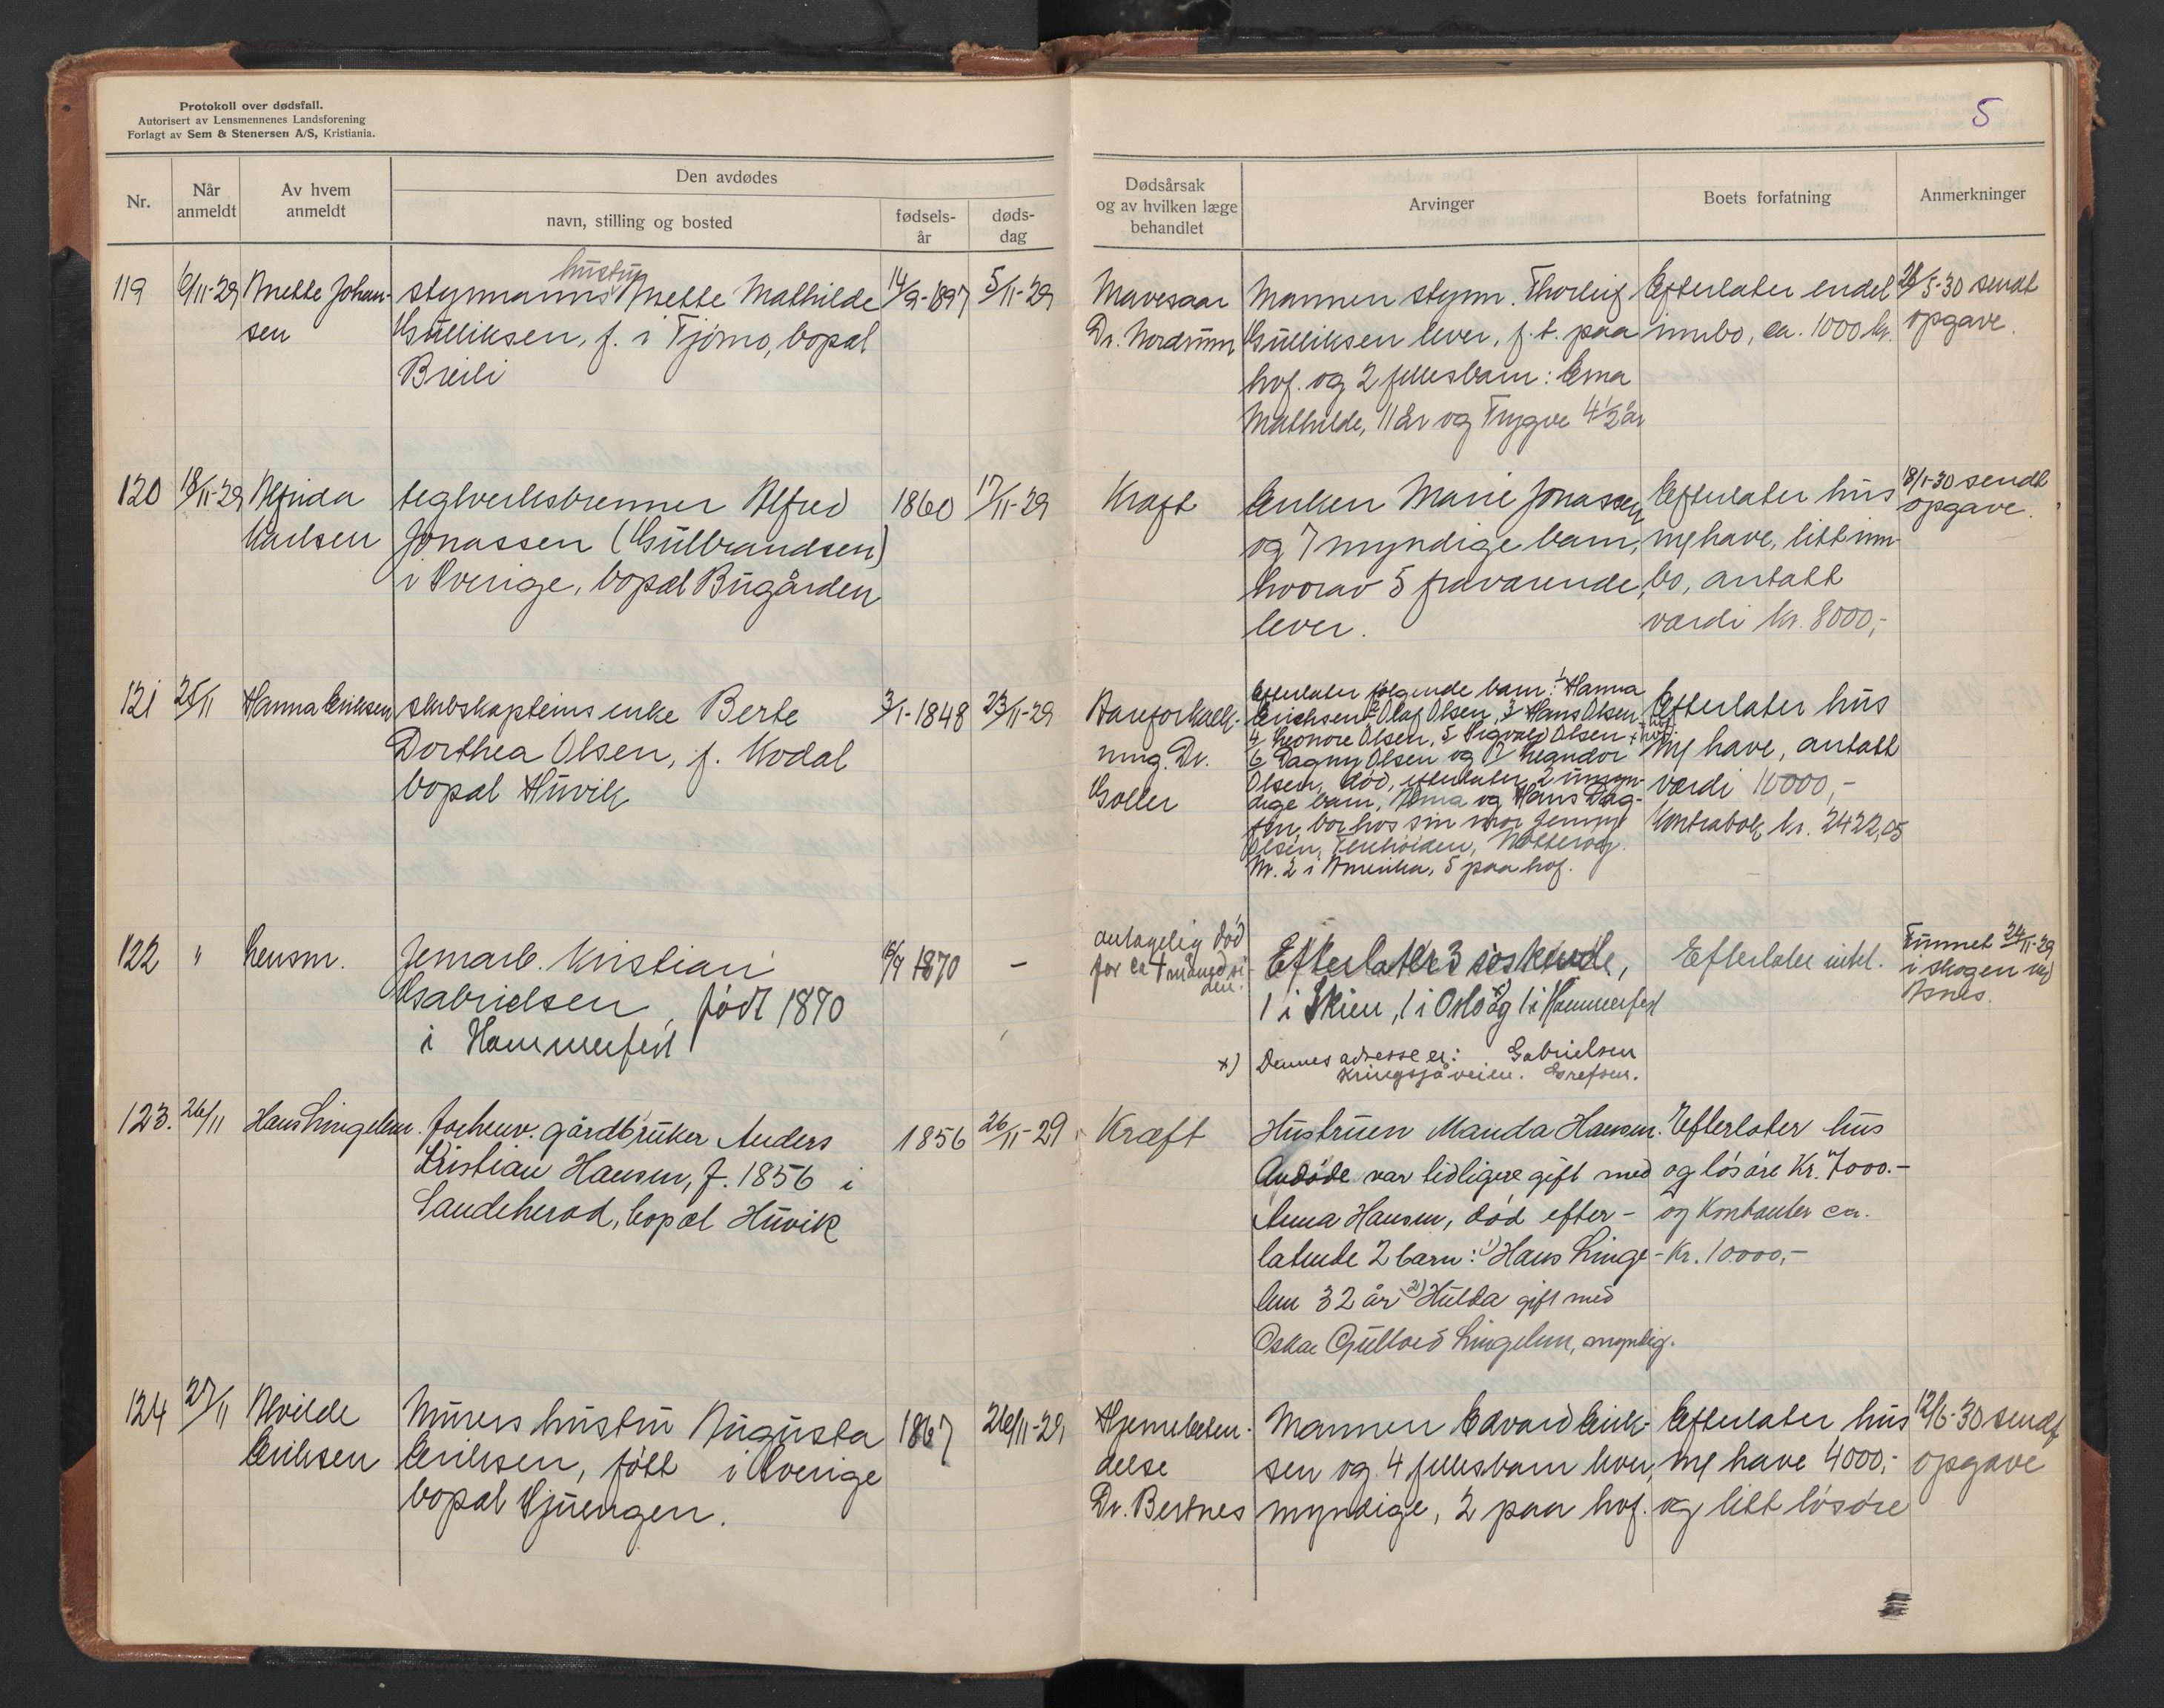 Protokoll over dødsfall.
Autorisert av Lensmennenes Landsforening
Forlagt av Sem & Stenersen A/S, Kristiania.
5
Nr.
Når anmeldt
Av hvem anmeldt
Den avdødes
navn, stilling og bosted
fødsels-år
døds-dag
Dødsårsak og av hvilken læge behandlet
Arvinger
Boets forfatning
Anmerkninger
119
6/11-29
Mette Johan-
sen
hustru
styrmanns Mette Mathilde
Gulliksen, f. i Tjømø, bopæl
Breili
14/9-1897
5/11-29
Mavesaar
Dr. Nordrum
Mannen styrm. Thorleif
Gulliksen lever, f.t. paa
hvf. og 2 fellesbarn: Erna
Mathilde, 11 år og Trygve 4 1/2 år
Efterlater endel
innbo, ca. 1000 kr.
28/5-30 sendt
opgave.
120
18/11-29
Alfrida
Karlsen
teglverksbrenner Alfred
Jonassen (Gulbrandsen)
i Sverige, bopæl Bugården
1860
17/11-29
Kræft
Enken Marie Jonassen
og 7 myndige barn,
hvorav 5 fraværende,
lever.
Efterlater hus
m/ have, litt inn-
bo, antatt
værdi kr. 8000,-
18/1-30 sendt
opgave.
121
25/11
Hanna Eriksen
skibskapteins enke Berte
Dorthea Olsen, f. Kodal
bopæl Huvik
3/1-1848
23/11-29
Aareforkalk-
ning. Dr.
Goller
Efterlater følgende barn: 1 Hanna
Erichsen 2 Olaf Olsen, 3 Hans Olsen - hvf.
4 Leonore Olsen, 5 Sigvald Olsen + hvf.
6 Dagny Olsen og 7 Legndor
Olsen, død, efterlater 2 umyn-
dige barn, Anna og Hans Dag-
fin, bor hos sin mor Jenny
Olsen, Teiehøiden, Nøtterøy.
Nr. 2 i Amerika, 5 paa hvf.
Efterlater hus
m/ have, antatt
værdi 10000,-
Kontrabok kr. 2422,05
122
"
Lensm.
Jernarb. Kristian
Gabrielsen, født 1870
i Hammerfest
1870
-
antagelig død
for ca 1 måned si-
den.
Efterlater 3 søskende,
1 i Skien, 1 i Oslo x) og 1 i Hammerfest
x) Dennes adresse er: Gabrielsen
Kringsjåveien. Grefsen.
Efterlater intet.
Funnet 24/11-29
i skogen ved
Asnes.
123.
26/11
Hans Lingelem.
forhenv. gårdbruker Anders
Kristian Hansen, f. 1856 i
Sandeherad, bopæl Huvik
1856
26/11-29
Kræft
Hustruen Manda Hansen.
Avdøde var tidligere gift med
Anna Hansen, død efter-
latende 2 barn: 1) Hans Linge-
lem 32 år 2) Hulda gift med
Oskar Gullord Lingelem, myndig.
Efterlater hus
og løsøre Kr. 7000.-
og Kontanter ca.
Kr. 10000,-
124
27/11
Alvilde
Eriksen
Murers hustru Augusta
Eriksen, født i Sverige
bopæl Hjuengen.
1867
26/11-29
Hjernebeten-
delse
Dr. Bertnes
Mannen Edvard Erik-
sen og 4 fellesbarn lever,
myndige, 2 paa hvf.
Efterlater hus
m/ have 4000,-
og litt løsøre
12/6-30 sendt
opgave